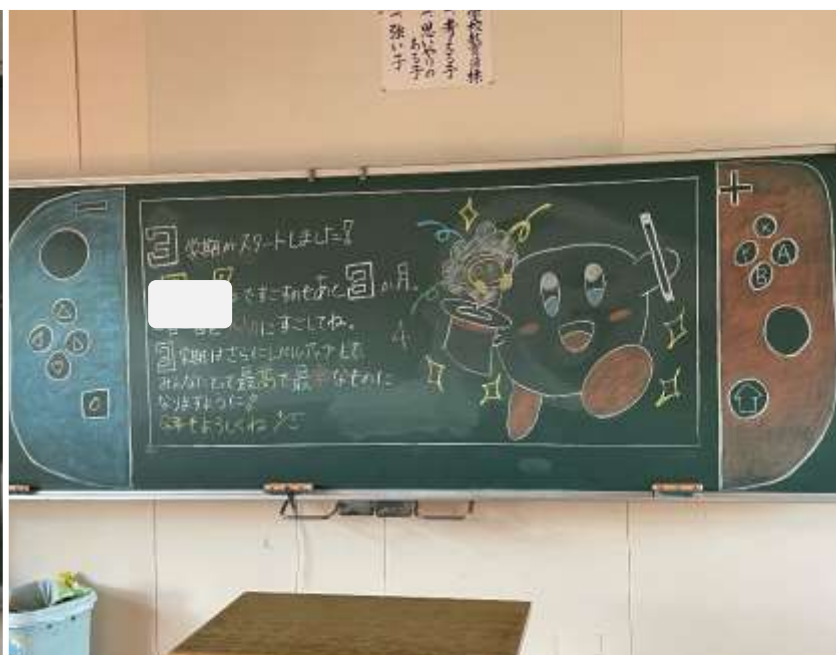 学校教育目標
考える子
思いやりの
ある子
強い子
3学期がスタートしました!
ですごすのもあと3か月。
にすごしてね。
3学期はさらにレベルアップして、
みんなにとって最高で最幸なものに
なりますように!
今年もよろしくね
X
Y
A
B